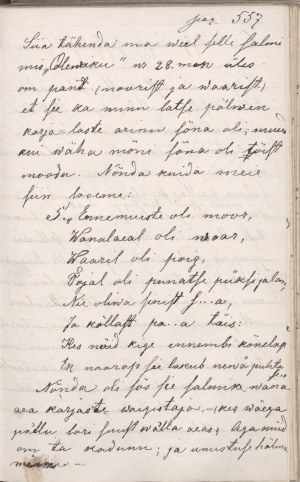 pag. 557
Siia tähendan ma weel selle salmi
mis „Olewiku" nr 28. man üles
om pant (noorist ja waarist)
et see ka minu latse pälwen
karja-laste armu sõna oli, muud
kui wäha mõni sõna oli tõist
moodu. Nõnda kuida meie
siin loeme:
„Ennemuiste oli moor,
Wanalaeal oli waar,
Waaril oli poeg,
Pojal oli punatse püksi jalan,
Nie oliwa suust s...a,
Ja kõllast pa..a täis:
Kes nüid kige ennembi kõnelap
Ek naarap se lakub newä puhta
Nõnda oli jos see salmike wana
aea karjaste waigistaja, - (kes wäega
pallu lori suust wälla aeas) Aga nüid
om ta kadunu; ja unustuse hõlma